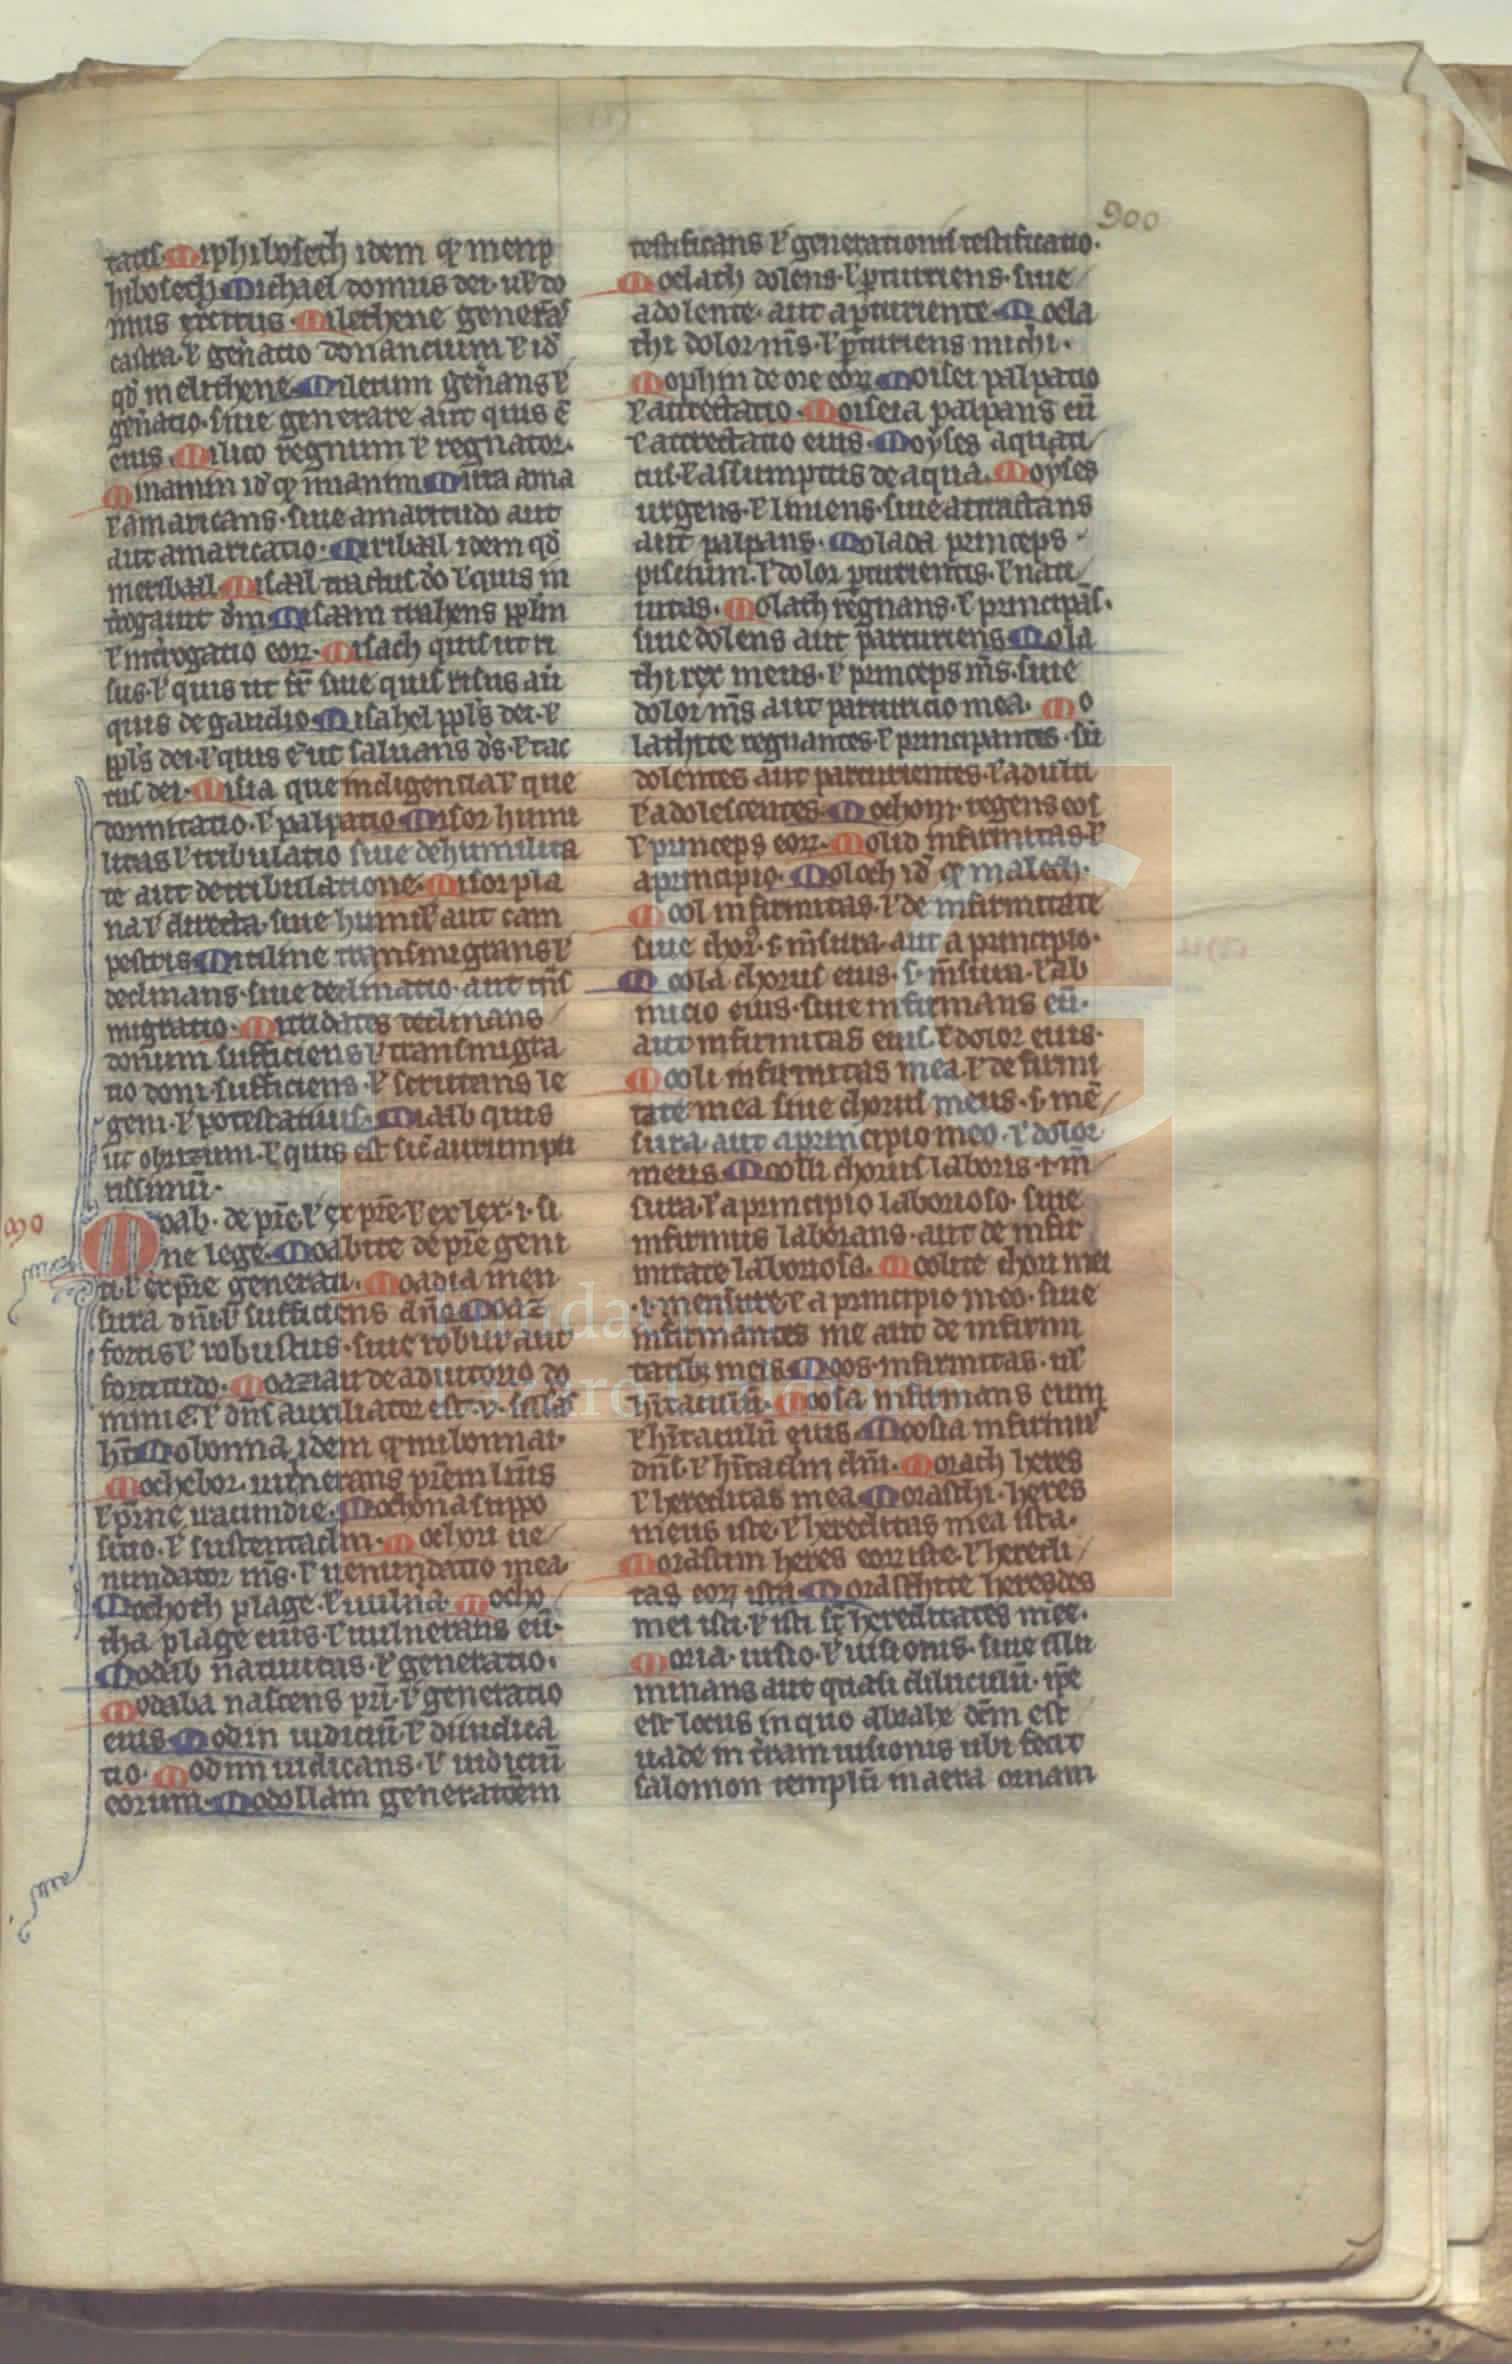 900
tatis. Miphibosech idem qd menp
hibosech. Michael domus dei. ul do
mus exercitus. Milethene generās
castra. ł gen̄atio donancium ł id
qd melithene. Miletum gen̄ans ł
gen̄atio. siue generare aut quis ē
eius. Milico regnum ł regnator.
Minamin id qd mianim. Mirra ama
ł amaricans. siue amaritudo aut
aut amaricatio. Miribaal idem qd
meribaal. Misael tactus do ł quis in
trogauit dm̄. Misaam trahens pplm
ł introgatio eorꝝ. Misach quis ut ri
sus. ł quis ut sic siue quis risus aū
quis de gaudio. Misahel ppls dei. ł
ppls dei. ł quis ē ut saluans ds. ł tac
tus dei. Misia que indigencia ł que
dormitatio. ł palpatio. Misor humi
litas ł tribulatio siue de humilita
te aut de tribulatione. Misor pla
na ł directa. siue humil aut cam
pestris. Mitiline transmigrans ł
declinans. siue declinatio. aut tns
migratio. Mitridates declinans
donum sufficiens ł transmigra
tio doni sufficiens. ł scrutans le
gem. ł potestatiuus. Mizaab quis
ut obrizum. ł quis est sic aurum pu
rissimū.
mo
Moab. de pr̄e. ł ex pr̄e. ł ex lex. i. si
ne lege. Moabite de pr̄e geni
ti. ł ex pr̄e generati. Moadia men
sura dn̄i. ł sufficiens dn̄o. Moaz
fortis ł robustus. siue robur aut
fortitudo. Moaziau de adiutorio do
mini ē. ł dn̄s auxiliator est.
hīt. Mobonnai idem qd mibonnai.
Mochebor. uulnerans pr̄em lim̄s
ł pr̄ine uacundie. Mochona suppo
sitio. ł sustentaclm. Mochori ue
nundator m̄s. ł uenundatio mea.
Mochoth plage. ł uulna. Mocho
tha plage eius. ł uulnerans eū.
Modab natiuitas. ł generatio.
Modaba nascens pr̄i. ł generatio
eius. Modin iudiciū. ł diiudica
tio. Modim iudicans. ł iudiciū
eorum. Modollam generatōem
testificans ł generationis testificatio.
Moelach dolens. ł pturiens. siue
a dolente. aut a pturiente. Moela
thi dolor m̄s. ł pturiens michi.
Mophin de ore eorꝝ. Moisei palpatio
ł attrectatio. Moiseia palpans eū
ł attrectatio eius. Moyses aquati
cus. ł assumptus de aqua. Moyses
urgens. ł liniens. siue attractans
aut palpans. Molada princeps
piscium. ł dolor pturientis. ł nati
uitas. Molach regnans. ł principās.
siue dolens aut parturiens. Mola
thi rex meus. ł princeps m̄s. siue
dolor m̄s aut parturicio mea. Mo
lathite regnantes. ł principantes. siū
dolentes aut parturientes. ł adulti
ł adolescentes. Mochom. regens eos
ł princeps eorꝝ. Molid infirmitas. ł
a principio. Moloch id qd malech.
Mool infirmitas. ł de infirmitate
siue chor. s. m̄sura. aut a principio.
Moola chorus eius. s. m̄sura. ł ab
inicio eius. siue infirmans eū.
aut infirmitas eius. ł dolor eius.
Mooli infirmitas mea ł de firmi
tate mea siue chorus meus. s. mē
sura. aut a principio meo. ł dolor
meus. Moolli chorus laboris. s. m̄
sura. ł a principio laborioso. siue
infirmus laborans. aut de infir
mitate laboriosa. Moolite chori mei
. s. mensure. ł a principio meo. siue
infirmantes me aut de infirmi
tatibꝫ meis. Moos. infirmitas. ul
hītaculū. Moosa infirmans eum
ł hītaculū eius. Moosia infirmꝰ
dn̄s. ł hītaclm dn̄i. Morach heres
ł hereditas mea. Morasthi. heres
meus iste. ł hereditas mea ista.
Morastim heres eorꝝ iste. ł heredi
tas eorꝝ ista. Morasthite heredes
mei isti. ł isti st̄ hereditates mee.
Moria. uisio. ł uisionis. siue illu
minans aut quasi diluculū. ip̄e
est locus in quo abrahe dc̄m est
uade in t̄ram uisionis ubi fecit
salomon templū in aera ornam
Fundación
Lázaro Galdiano